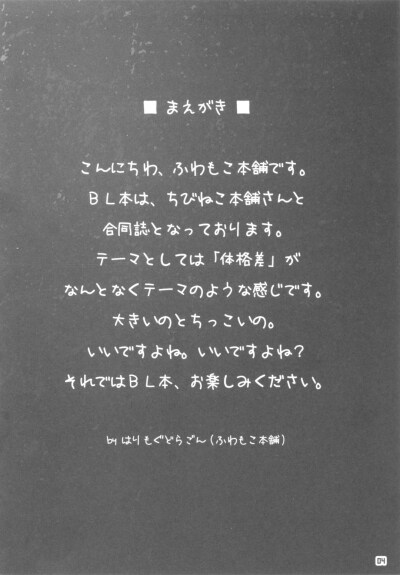 ■ まえがき ■
こんにちわ、ふわもこ本舗です。
BL本は、ちびねこ本舗さんと
合同誌となっております。
テーマとしては「体格差」が
なんとなくテーマのような感じです。
大きいのとちっこいの。
いいですよね。いいですよね?
それではBL本、お楽しみください。
by はりもぐどらごん(ふわもこ本舗)
04